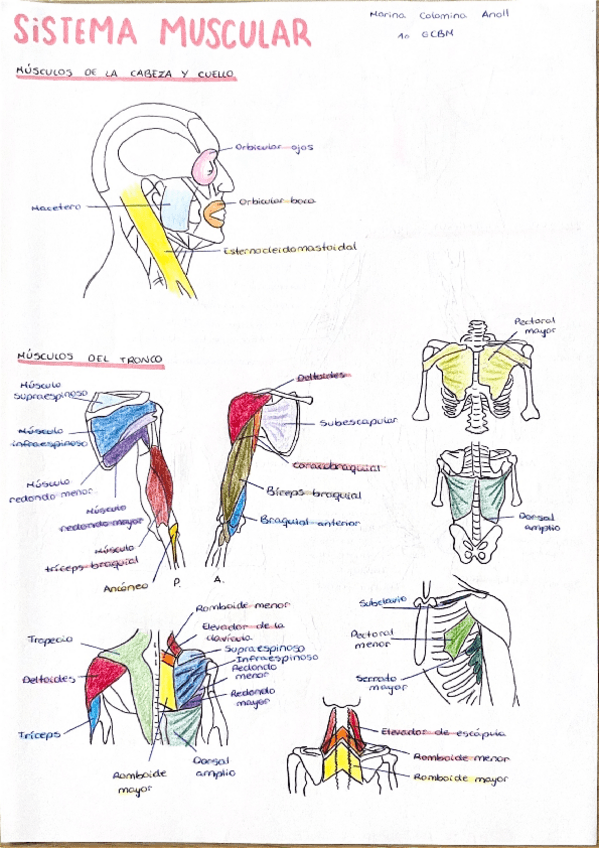 SiSTEMA MUSCULAR
Marina Colomina Anoll
1º GCBM
MÚSCULOS DE LA CABEZA Y CUELLO
Orbicular ojos
Macetero
Orbicular boca
Esternocleidomastoidal
MÚSCULOS DEL TRONCO
Pectoral
mayor
Músculo
supraespinoso
Músculo
infraespinoso
Músculo
redondo menor
Músculo
redondo mayor
Músculo
tríceps braquial
Ancóneo
P.
A.
Deltoides
Subescapular
coracobraquial
Bíceps braquial
Braquial anterior
Dorsal
amplio
Trapecio
Deltoides
Tríceps
Romboide menor
Elevador de la
clavícula
Supraespinoso
Infraespinoso
Redondo
menor
Redondo
mayor
Romboide
mayor
Dorsal
amplio
Subclavio
Pectoral
menor
Serrato
mayor
Elevador de escápula
Romboide menor
Romboide mayor